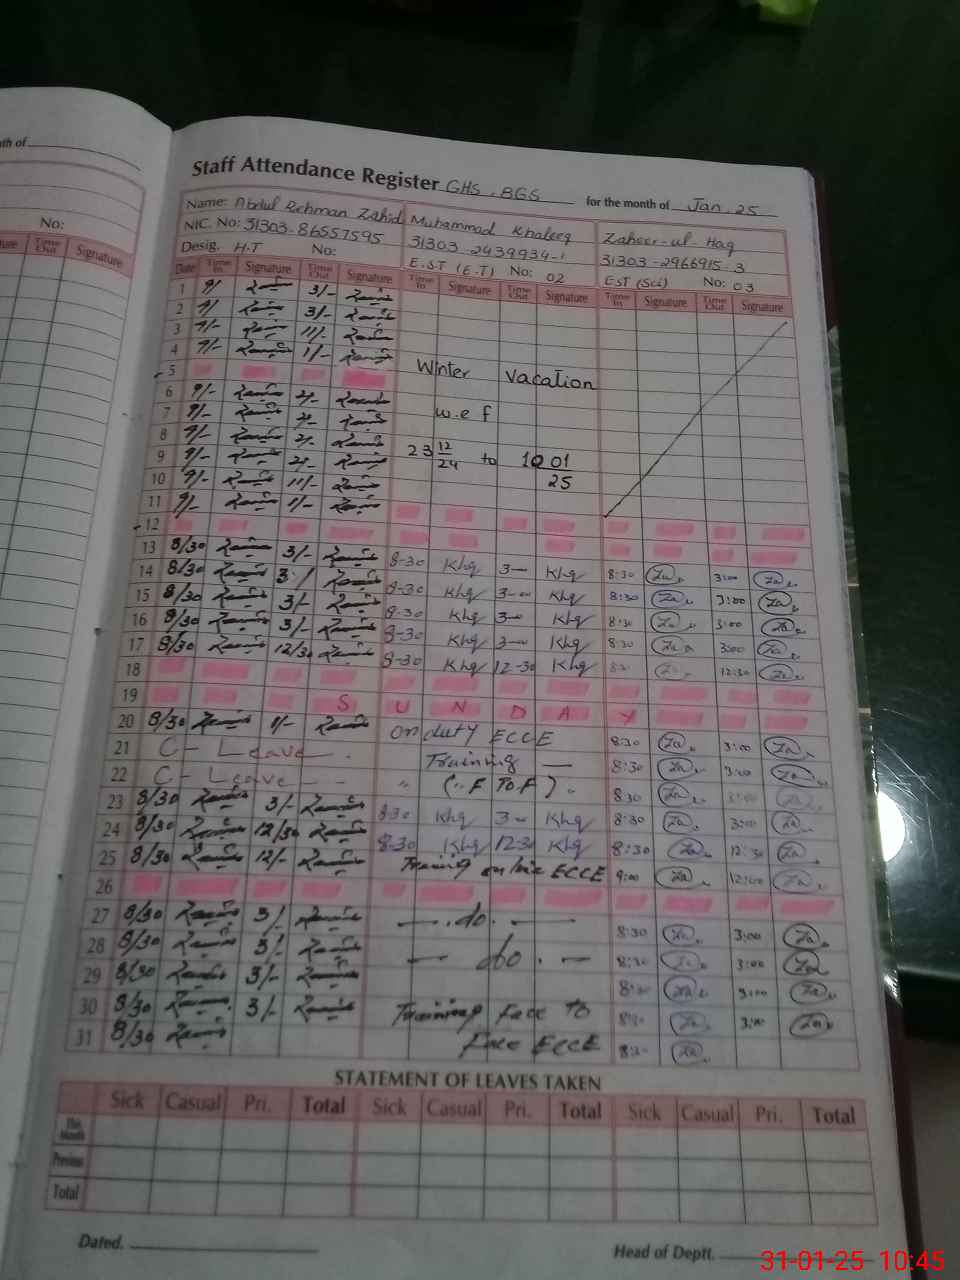 nth of
No:
Time Out Signature
Staff Attendance Register GHS. BGS for the month of Jan. 25
Name: Abdul Rehman Zahid Muhammad Khaleeq Zaheer-ul-Haq
NIC. No: 31303-86557595 31303-2439934-1 31303-2966915-3
Desig. H.T No: E.ST (E.T) No: 02 EST (Sci) No: 03
Date Time In Signature Time Out Signature Time In Signature Time Out Signature Time In Signature Time Out Signature
1 9/ 3/-
2 9/ 3/-
3 9/- 11/-
4 9/- 1/-
5 Winter Vacation
6 9/- 2/-
7 9/- 2/- w.e.f
8 9/- 2/-
9 9/- 2/- 23 12/24 to 10 01/25
10 9/- 11/-
11 9/- 1/-
12
13 8/30 3/- 8-30 Khq 3- Khq 8:30 Za 3:00 Za
14 8/30 3/ 8-30 Khq 3-00 Khq 8:30 Za 3:00 Za
15 8/30 3/- 8-30 Khq 3-00 Khq 8:30 Za 3:00 Za
16 8/30 3/- 8-30 Khq 3-00 Khq 8:30 Za 3:00 Za
17 8/30 12/30 8-30 Khq 12-30 Khq 8:30 Za 12:30 Za
18
19 S U N D A Y
20 8/30 1/- on duty ECCE 8:30 Za 3:00 Za
21 C - Leave Training 8:30 Za 3:00 Za
22 C - Leave (F To F) 8:30 Za 3:00 Za
23 8/30 3/- 8-30 Khq 3-00 Khq 8:30 Za 3:00 Za
24 8/30 12/30 8-30 Khq 12-30 Khq 8:30 Za 12:30 Za
25 8/30 12/- Training online ECCE 9:00 Za 12:00 Za
26
27 8/30 3/- do. 8:30 Za 3:00 Za
28 8/30 3/- do. 8:30 Za 3:00 Za
29 8/30 3/- 8:30 Za 3:00 Za
30 8/30 3/- Training Face to 8:30 Za 3:00 Za
31 8/30 Face ECCE 8:30 Za
STATEMENT OF LEAVES TAKEN
Sick Casual Pri. Total Sick Casual Pri. Total Sick Casual Pri. Total
This Month
Previous
Total
Dated. Head of Deptt.
31-01-25 10:45